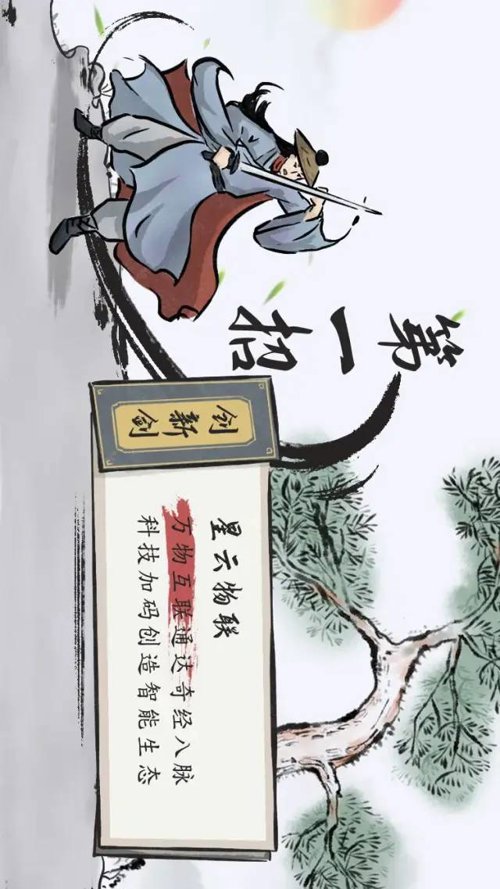 第一招
创新剑
星云物联
万物互联通达奇经八脉
科技加码创造智能生态